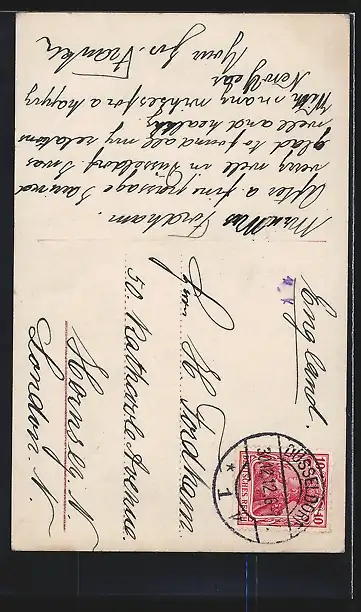 Mr and Mrs Fordham.
After a fine passage I arrived
very well in Düsseldorf. I was
glad to found all my relations
well and healthy.
With many wishes for a happy
New Year
Your fos. Franken
England.
H. Fordham.
50. Avenue.
Hornsey N
London N.
DÜSSELDORF
30.12.12.6
* 1
DEUTSCHES REICH
10
10